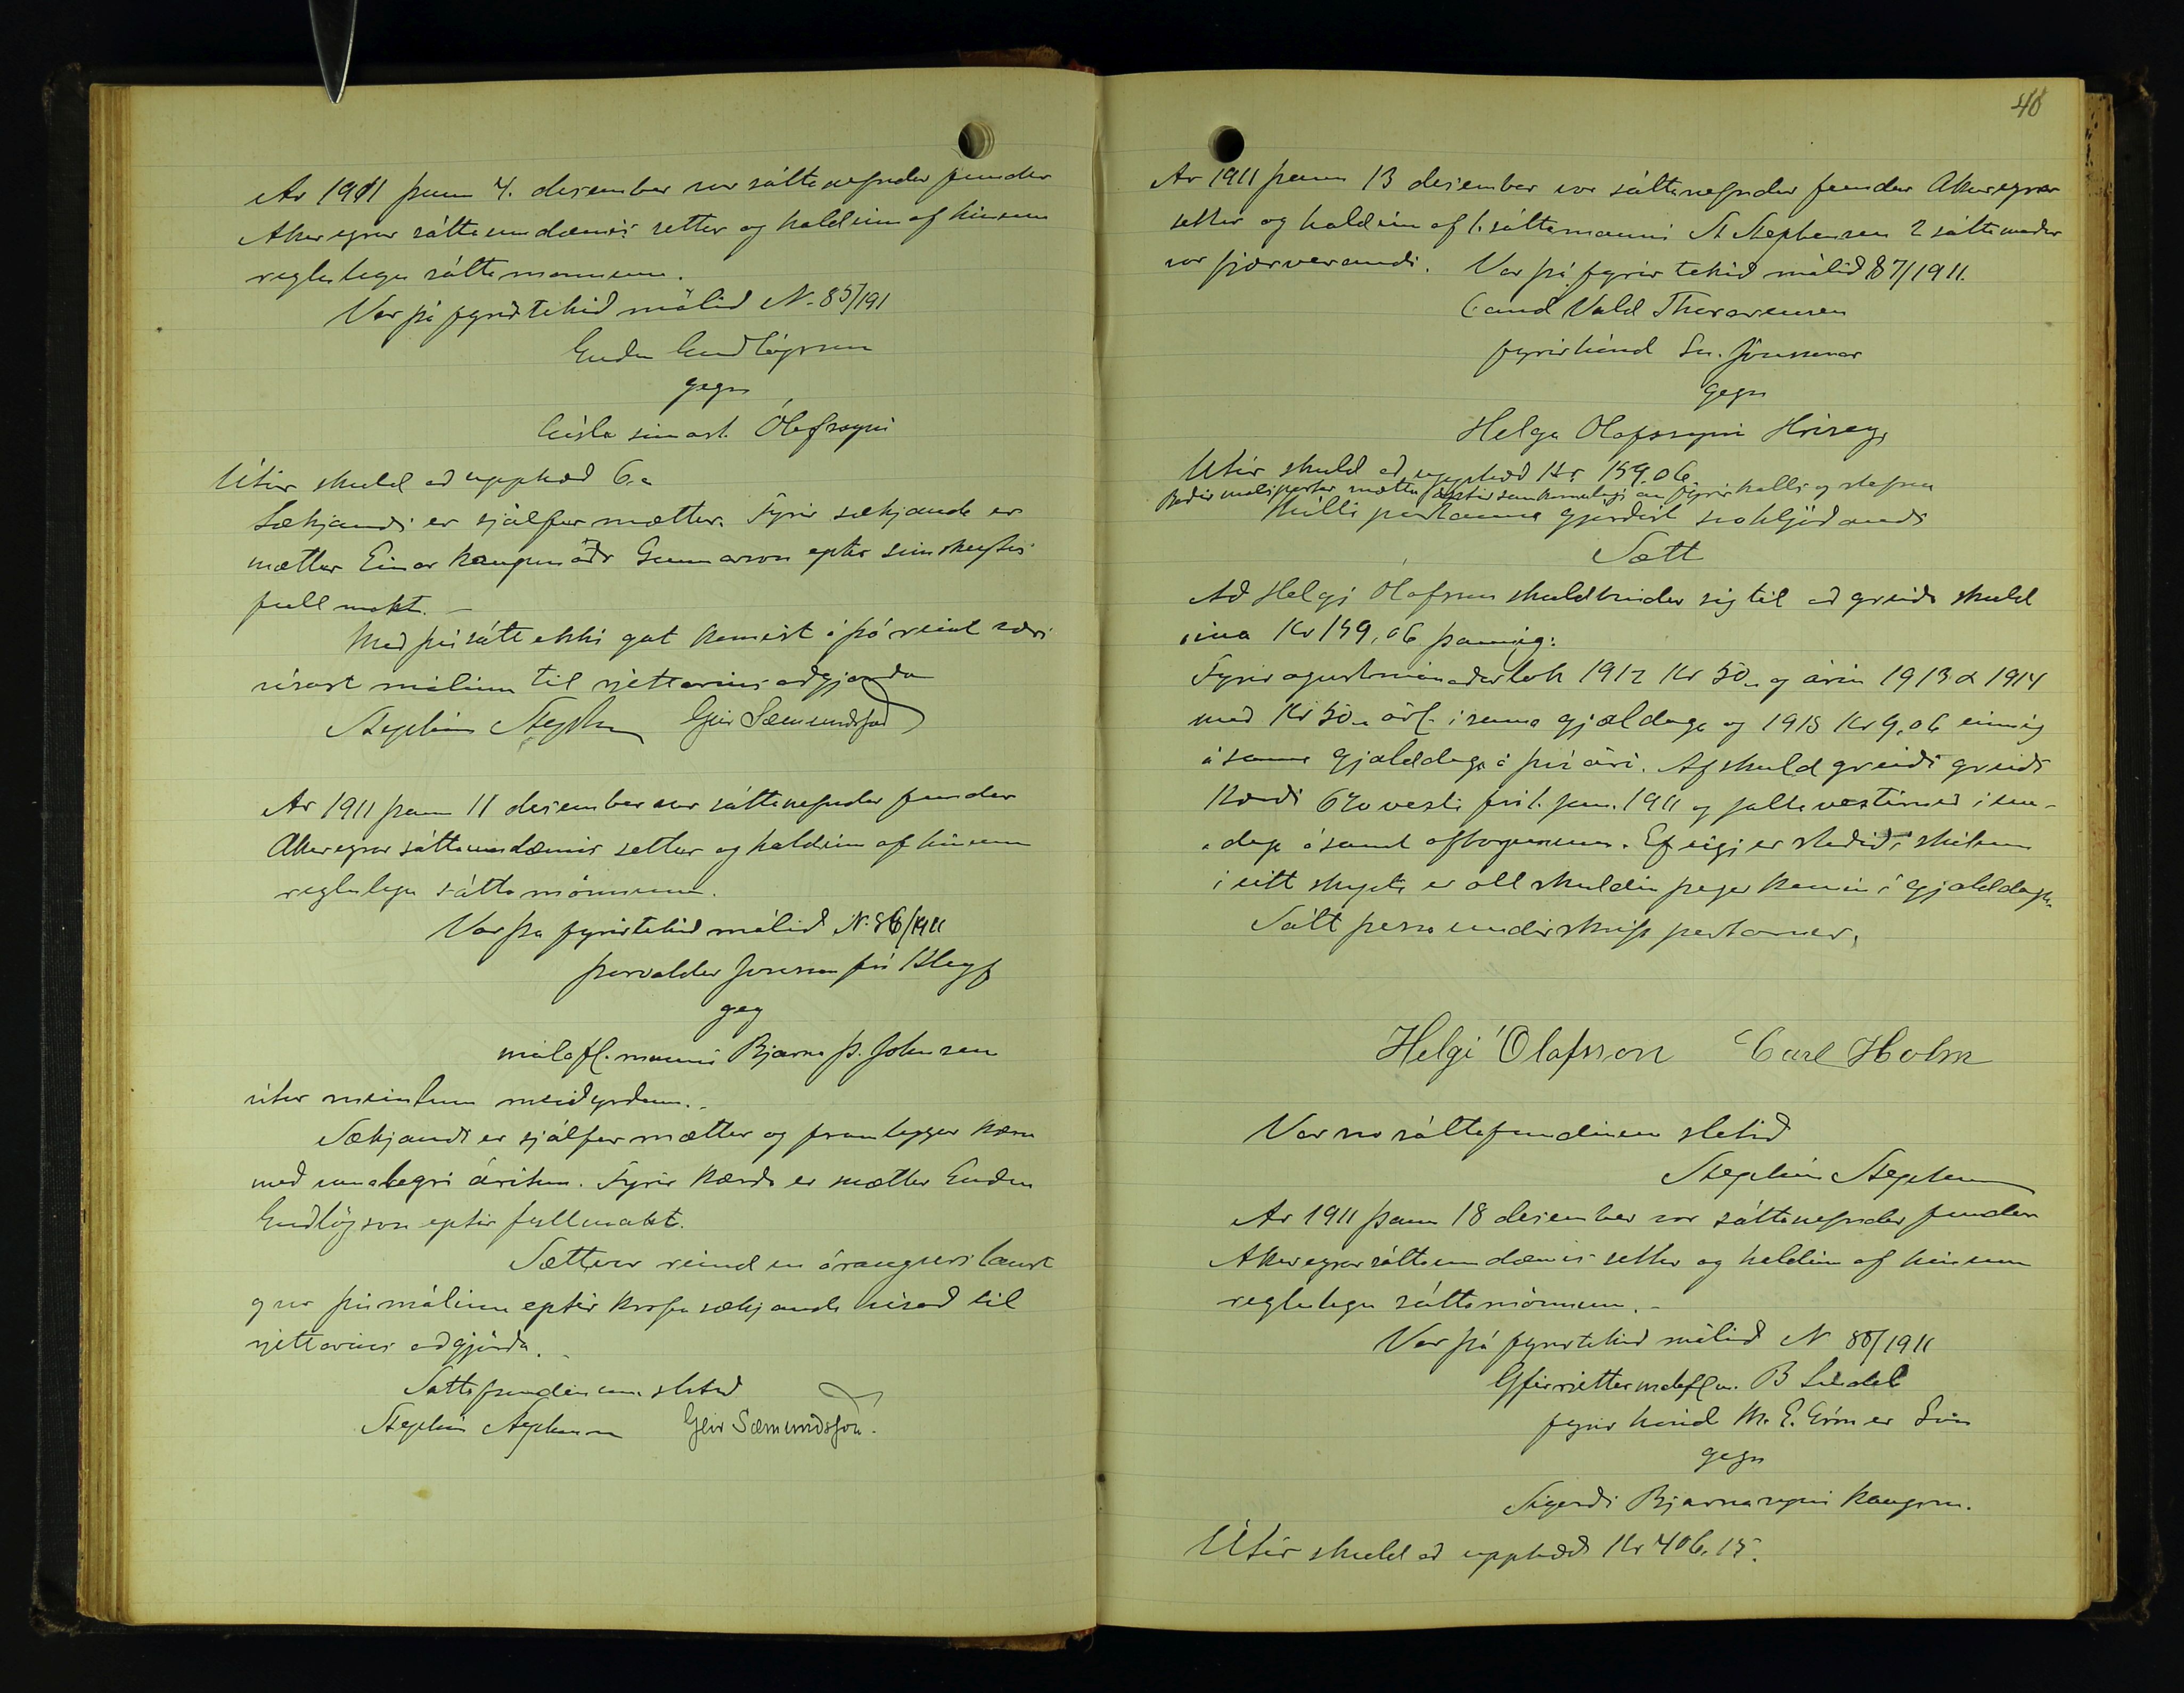 Ar 1911 þann 4. desember var sáttanefndar fundur
Akureyrar sáttaumdæmis settur og haldinn af hinum
reglulegu sáttamonnum.
Var þá fyrirtekið málið N. 85/191
Guðm Guðlögsson
gegn
Gísla simast. Ólafssyni
Útúr skuld að upphæð 6.
Sækjandi er sjálfur mættur. Fyrir sækjanda er
mættur Einar kaupmaðr Gunnarson eptir simskeytis
fullmakt. –
Með því sátt ekki gat komist á þó reint væri
vísast málinu til rjettarins aðgjörða
Stephán Stephensen Geir Sæmundsson
Ar 1911 þann 11 desember var sáttanefndar fundur
Akureyrar sáttaumdæmis settur og haldinn af hinum
reglulegu sáttamönnum.
Var þa fyrirtekið málið N. 86/1911
Þorvaldur Jonsson frá
geg
málafl.manni Bjarna Þ. Johnson
útur meintum meiðyrðum. –
Sækjandi er sjálfur mættur og framleggur kæru
með vanalegri áritun. Fyrir kærda er mættur Guðm
Guðlögsson eptir fullmakt.
Sætt var reind en árangurslaust
og var því málinu eptir krofu sækjanda vísað til
rjettarins aðgjörða. –
Sattafundinum slitið
Stephán Stephensen Geir Sæmundsson.
40
Ar 1911 þann 13 desember var sáttanefndar fundur Akureyrar
settur og haldinn af 1. sáttamanni St Stephensen 2 sáttamaður
var fjærverandi. Var þá fyrir tekið málið 87/1911.
Cand Vald Thorarensen
fyrir hönd Sn. Jónssonar
gegn
Helga Olafssyni Hrísey,
Utúr skuld að upphæð Kr. 159.06
Baðir malspartar mættu eptir samkomulagi an fyrirkalls og stefnu
Milli partanna gjørdist svohljóðandi
Sætt
Að Helgi Ólafsson skuldbindur sig til að greiða skuld
sina Kr 159,06 þannig:
Fyrir agustmánaðarlok 1912 Kr 50 „ og árin 1913 & 1914
með Kr 50 „ árl. í sama gjalddaga og 1915 Kr 9,06 einnig
á sama gjalddaga á því ári. Af skuld greiði greiði
Kærði 6% vexti frá 1. jan. 1911 og falla vextirnir í ein-
daga ásamt afborgunum. Ef eigi er staðið í skilum
i eitt skypti er öll skuldin þegar komin í gjalddaga.
Sátt þessa undirskrifa partarnir.
Helgi Olafsson Carl Holm
Var svo sáttafundinum slitið
Stephán Stephensen
Ar 1911 þann 18 desember var sáttanefndar fundur
Akureyrar sáttaumdæmis settur og haldinn af hinum
reglulegu sáttamönnum. –
Var þá fyrirtekið málið N 88/1911
Yfirrjettarmálaflm. B Lindal
fyrir hönd M. E. Grüner Sön
gegn
Sigurði Bjarnasyni kaupm.
Útúr skuld að upphæð Kr 406.15.